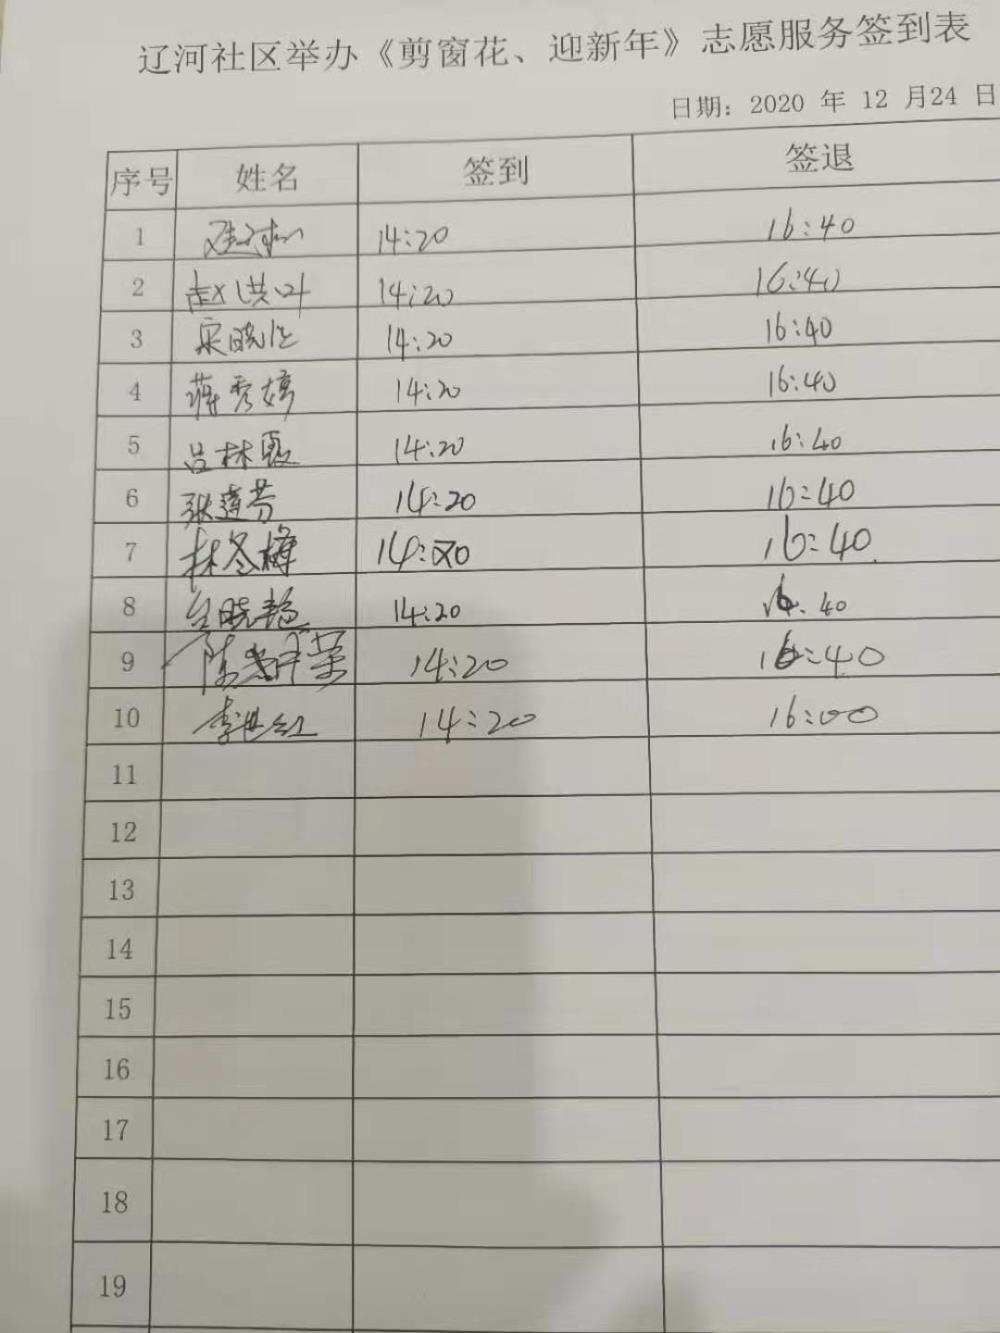 辽河社区举办《剪窗花、迎新年》志愿服务签到表
日期：2020 年 12 月24 日
序号 姓名 签到 签退
1 14:20 16:40
2 赵洪叶 14:20 16:40
3 宋晓 14:20 16:40
4 蒋秀婷 14:20 16:40
5 吕林霞 14:20 16:40
6 张莲芳 14:20 16:40
7 林冬梅 14:20 16:40
8 晓艳 14:20 16:40
9 陈 荣 14:20 16:40
10 李世红 14:20 16:00
11
12
13
14
15
16
17
18
19